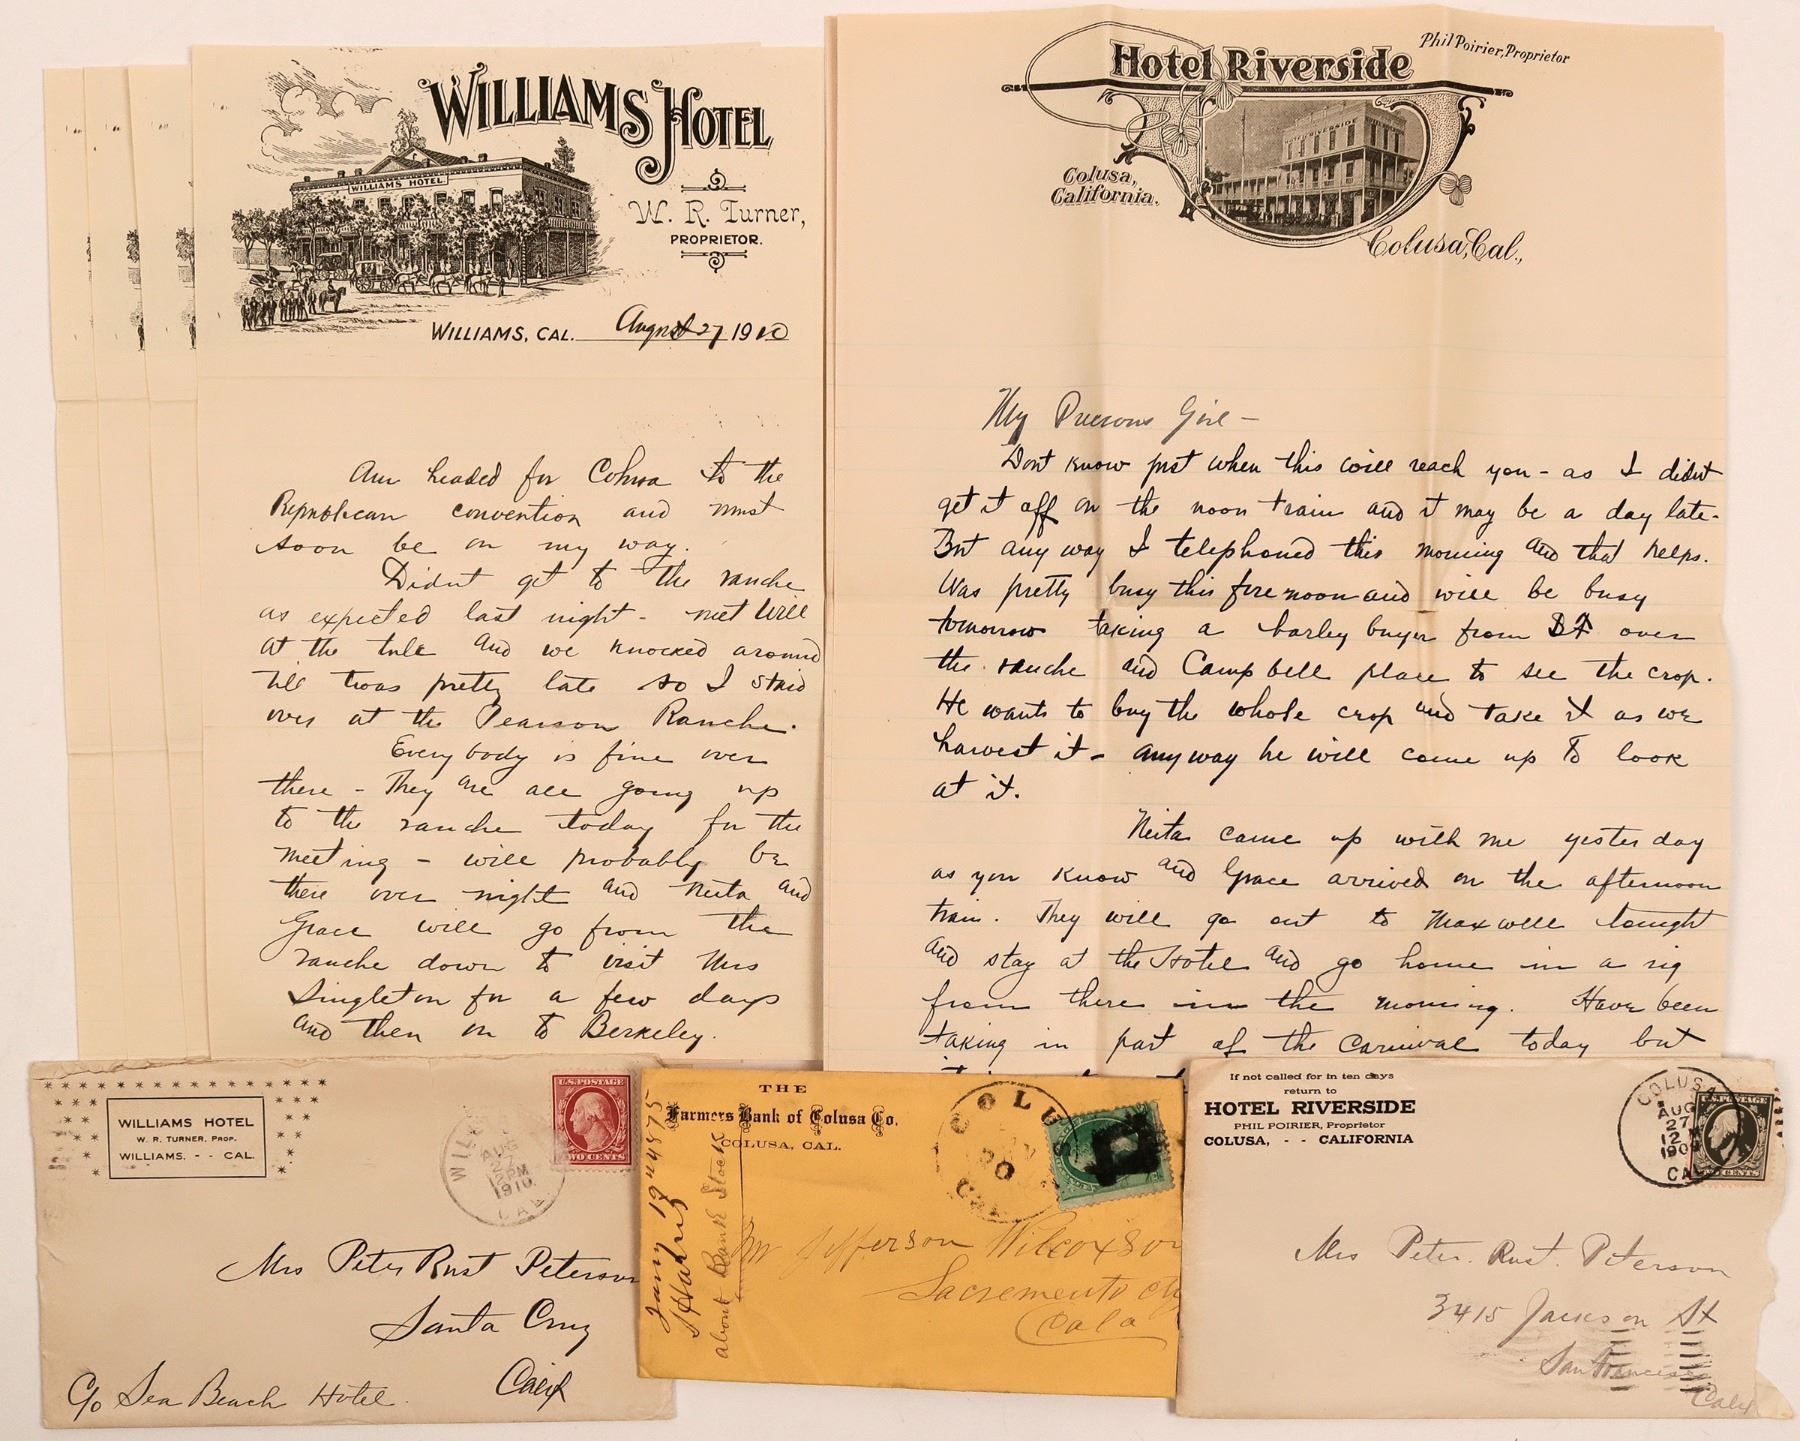 WILLIAMS HOTEL
WILLIAMS HOTEL
W. R. Turner,
PROPRIETOR.
WILLIAMS, CAL. August 27 1910
Am headed for Colusa to the
Republican convention and must
soon be on my way.
Didnt get to the ranche
as expected last night - met Will
at the tule and we knocked around
till twas pretty late so I staid
over at the Pearson Ranche.
Everybody is fine over
there - They are all going up
to the ranche today for the
meeting - will probably be
there over night and Neita and
Grace will go from the
ranche down to visit Mrs
Singleton for a few days
and then on to Berkeley.
Hotel Riverside
Phil Poirier, Proprietor
RIVERSIDE
Colusa,
California.
Colusa, Cal.,
My Precious Girl -
Dont know just when this will reach you - as I didnt
get it off on the noon train and it may be a day late -
But any way I telephoned this morning and that helps.
Was pretty busy this forenoon and will be busy
tomorrow taking a barley buyer from SF over
the ranche and Campbell place to see the crop.
He wants to buy the whole crop and take it as we
harvest it - anyway he will come up to look
at it.
Neita came up with me yesterday
as you know and Grace arrived on the afternoon
train. They will go out to Maxwell tonight
and stay at the Hotel and go home in a rig
from there in the morning. Have been
taking in part of the Carnival today but
WILLIAMS HOTEL
W. R. TURNER, PROP.
WILLIAMS, - - CAL.
U.S. POSTAGE
TWO CENTS
AUG
27
12 PM
1910
CAL
Mrs Peter Rust Peterson
Santa Cruz
Calif
C/o Sea Beach Hotel.
THE
Farmers Bank of Colusa Co.
COLUSA, CAL.
COLUS
20
CAL
Jany 19th 1875
about Bank Stock
Mr Jefferson Wilcoxson
Sacremento City
Cala
If not called for in ten days
return to
HOTEL RIVERSIDE
PHIL POIRIER, Proprietor
COLUSA, - - CALIFORNIA
COLUSA
AUG
27
12 M
1909
CAL
Mrs Peter. Rust. Peterson
3415 Jackson St
San Francisco
Calif